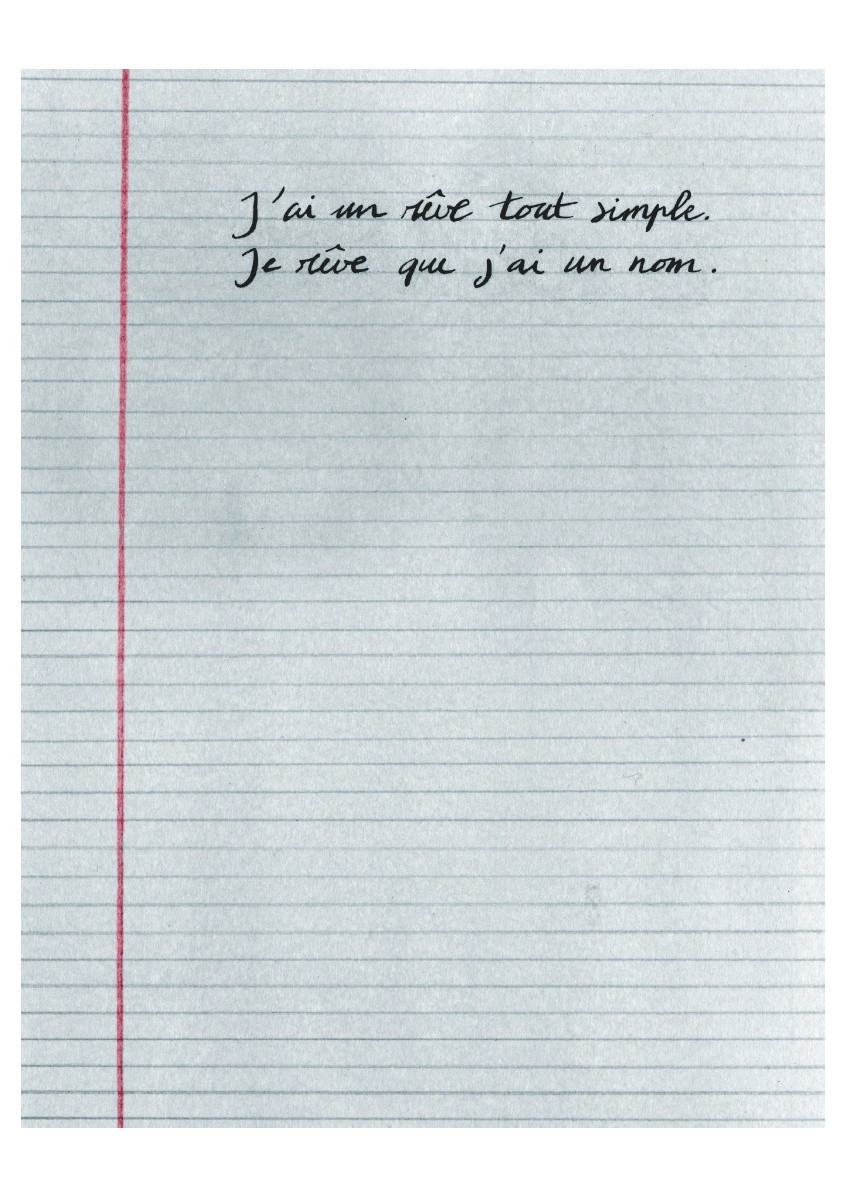 J'ai un rêve tout simple.
Je rêve que j'ai un nom.